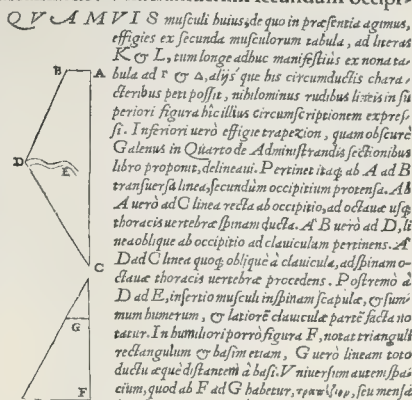 QVAMVIS musculi huius, de quo in præsentia agimus,
effigies ex secunda musculorum tabula, ad literas
K & L, tum longe adhuc manifestius ex nona ta-
bula ad Γ & Δ, alijs que his circumductis chara-
cteribus peti possit, nihilominus rudibus lineis in su
periori figura hic illius circumscriptionem expres-
si. Inferiori uerò effigie trapezion, quam obscurè
Galenus in Quarto de Administrandis sectionibus
libro proponit, delineaui. Pertinet itaq; ab A ad B
transuersa linea, secundùm occipitium protensa. Ab
A uerò ad C linea recta ab occipitio, ad octauæ usq;
thoracis uertebræ spinam ducta. A B uerò ad D, li
nea oblique ab occipitio ad clauiculam pertinens. A
D ad C linea quoq; obliquè à clauicula, ad spinam o-
ctauæ thoracis uertebræ procedens. Postremò à
D ad E, insertio musculi in spinam scapulæ, & sum
mum humerum, & latiorē clauiculæ partē facta no
tatur. In humiliori porrò figura F, notat trianguli
rectangulum & basim etiam, G uerò lineam toto
ductu æquè distantem à basi. Vniuersum autem spa-
cium, quod ab F ad G habetur, τραπέζιον, seu mensa
B
A
D
E
C
G
F